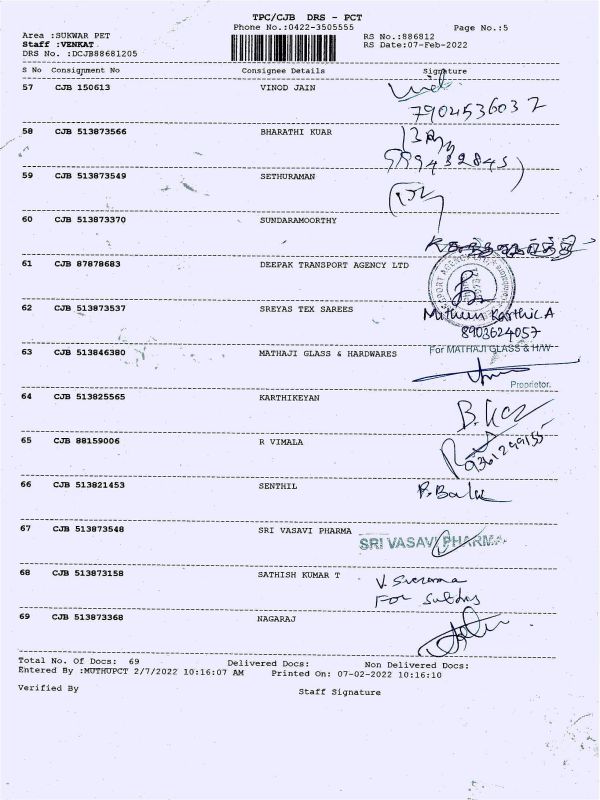 TPC/CJB DRS - PCT
Phone No.:0422-3505555
Page No.:5
Area :SUKWAR PET
RS No.:886812
Staff :VENKAT
RS Date:07-Feb-2022
DRS No. :DCJB88681205
S No Consignment No Consignee Details Signature
57 CJB 150613 VINOD JAIN
7904536037
58 CJB 513873566 BHARATHI KUAR
59 CJB 513873549 SETHURAMAN
60 CJB 513873370 SUNDARAMOORTHY
61 CJB 87878683 DEEPAK TRANSPORT AGENCY LTD
62 CJB 513873537 SREYAS TEX SAREES
Mithun Karthic.A
8903624057
63 CJB 513846380 MATHAJI GLASS & HARDWARES
For MATHAJI GLASS & H/W
Proprietor.
64 CJB 513825565 KARTHIKEYAN
65 CJB 88159006 R VIMALA
9361299155
66 CJB 513821453 SENTHIL
67 CJB 513873548 SRI VASAVI PHARMA
SRI VASAVI PHARMA
68 CJB 513873158 SATHISH KUMAR T
For
69 CJB 513873368 NAGARAJ
Total No. Of Docs: 69 Delivered Docs: Non Delivered Docs:
Entered By :MUTHUPCT 2/7/2022 10:16:07 AM Printed On: 07-02-2022 10:16:10
Verified By Staff Signature